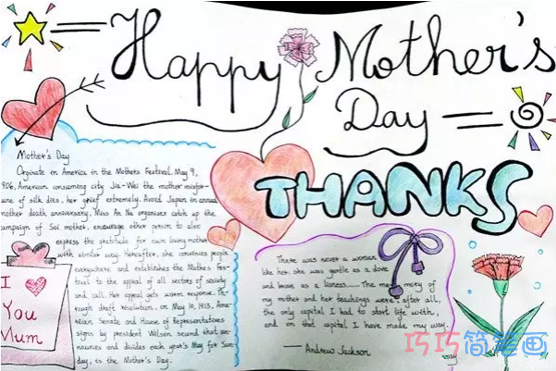 Happy Mother's
Day
THANKS
Mother's Day
Originate in America in the Mothers Festival. May 9,
906, American consaming city Jia-Wei the mother misfor-
une of silk dies, her grief extremely. Avoid Japan in annual
mother death anniversary, Miss An Na organizes catch up the
campaign of Sai mother, encourage other person to also
express the gratitude for own loving mother
with similar way. Hereafter, she convinces people
everywhere and establishes the Mothers Fes-
tival to the appeal of all sectors of society
and call. Her appeal gets warm response. Th-
rough draft resolution, on May 10, 1913, Ame-
rican Senate and House of Representatives
signs by president Wilson second that an-
nounces and divides each year's May for Sun-
day, is the Mother's Day.
I
You
Mum
There was never a woman
like her. she was gentle as a dove
and brave as a lioness...... The memory of
my mother and her teachings were, after all,
the only capital I had to start life with,
and on that capital I have made my way.
—— Andrew Jackson
巧巧简笔画